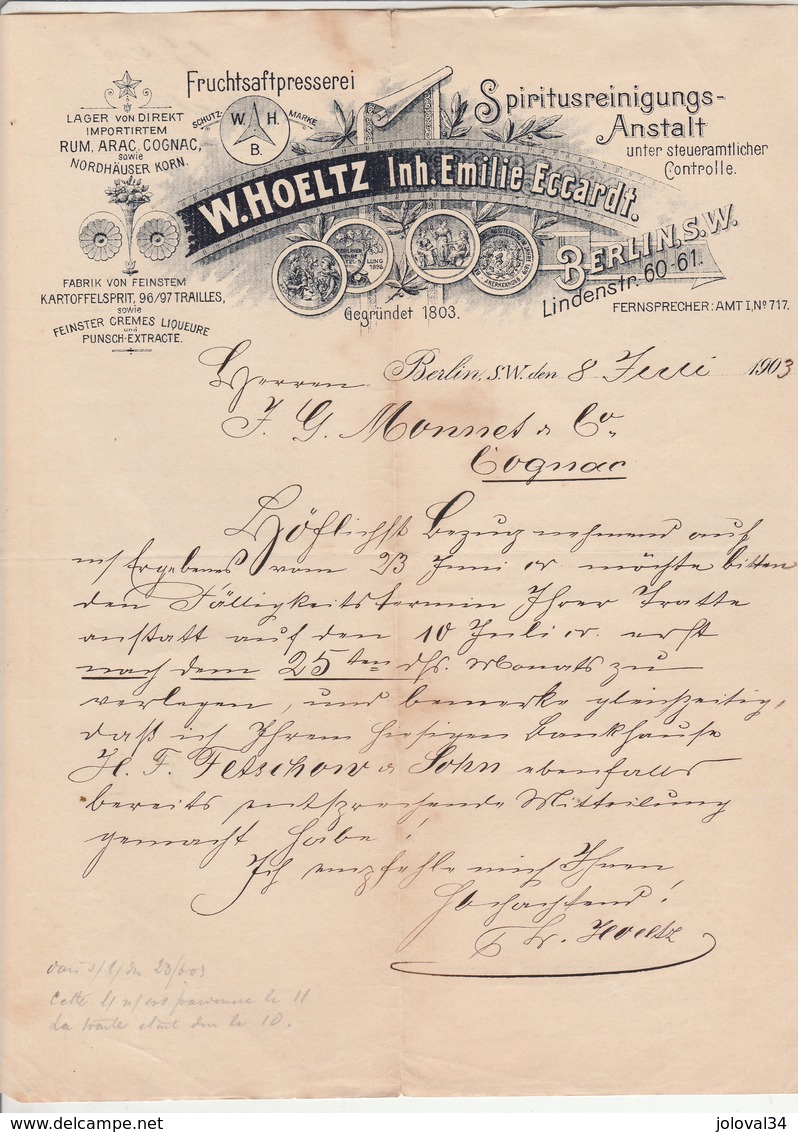 Fruchtsaftpresserei
SCHUTZ-MARKE
W. H.
B.
LAGER VON DIREKT
IMPORTIRTEM
RUM, ARAC, COGNAC,
sowie
NORDHÄUSER KORN.
FABRIK VON FEINSTEM
KARTOFFELSPRIT, 96/97 TRAILLES,
sowie
FEINSTER CREMES LIQUEURE
und
PUNSCH-EXTRACTE.
Spiritusreinigungs-
Anstalt
unter steueramtlicher
Controlle.
W. HOELTZ Inh. Emilie Eccardt.
BERLIN, S.W.
Lindenstr. 60-61.
FERNSPRECHER: AMT I, No 717.
Gegründet 1803.
Berlin, S.W. den 8 Juli 1903
Herren
J. G. Monnet & Co,
Cognac
Höflichst Bezug nehmend auf
m/ Ergebenes vom 23 Juni cr. möchte bitten
den Fälligkeitstermin Ihrer Tratte
anstatt auf den 10 Juli cr. erst
nach dem 25ten dss. Monats zu
verlegen, und bemerke gleichzeitig,
daß ich Ihrem hiesigen Bankhause
H. F. Fetschow & Sohn ebenfalls
bereits entsprechende Mitteilung
gemacht habe!
Ich empfehle mich Ihnen
Hochachtend!
W. Hoeltz
23/6 03
Cette le 11
La traite était due le 10.
joloval34